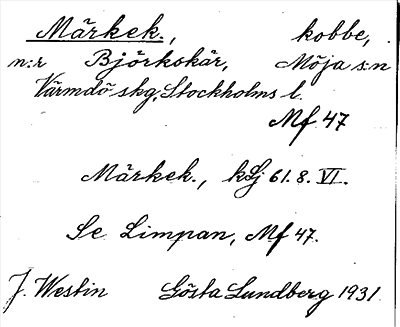 Märkek., kobbe,
n:r Björkskär, Möja s:n
Värmdö skg, Stockholms l.
Mf 47
Märkek., kSj 61. 8. VI.
Se Limpan, Mf 47.
J. Westin Gösta Lundberg 1931